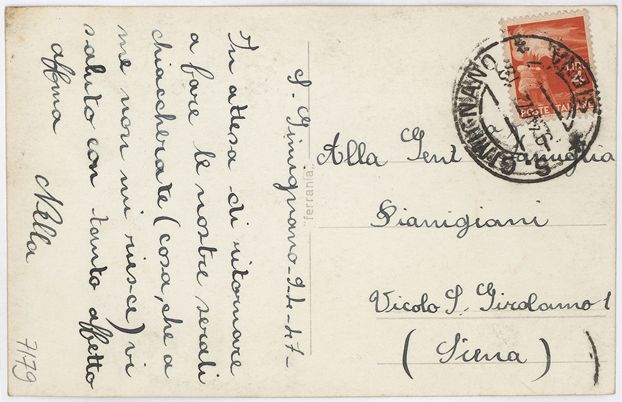 S. Gimignano-9-4-47-
In attesa di ritornare
a fare le nostre serali
chiaccherate (cosa, che a
me non mi riesce) vi
saluto con tanto affetto
affma
Nella
7179
"ferrania"
S. GIMIGNANO
SIENA
POSTE ITALIANE
Alla Gent Famiglia
Pianigiani
Vicolo S. Girolamo 1
(Siena)